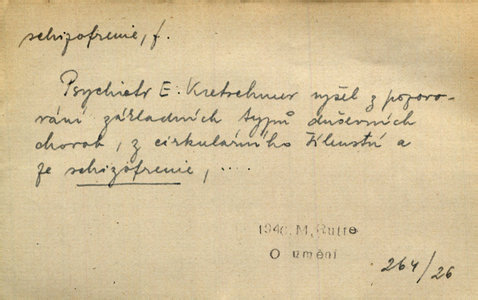 schizofrenie, f.
Psychiatr E. Kretschmer vyšel z pozoro-
vání základních typů duševních
chorob, z cirkulárního
ze schizofrenie, ....
1940, M, Rutte
O umění
264/26